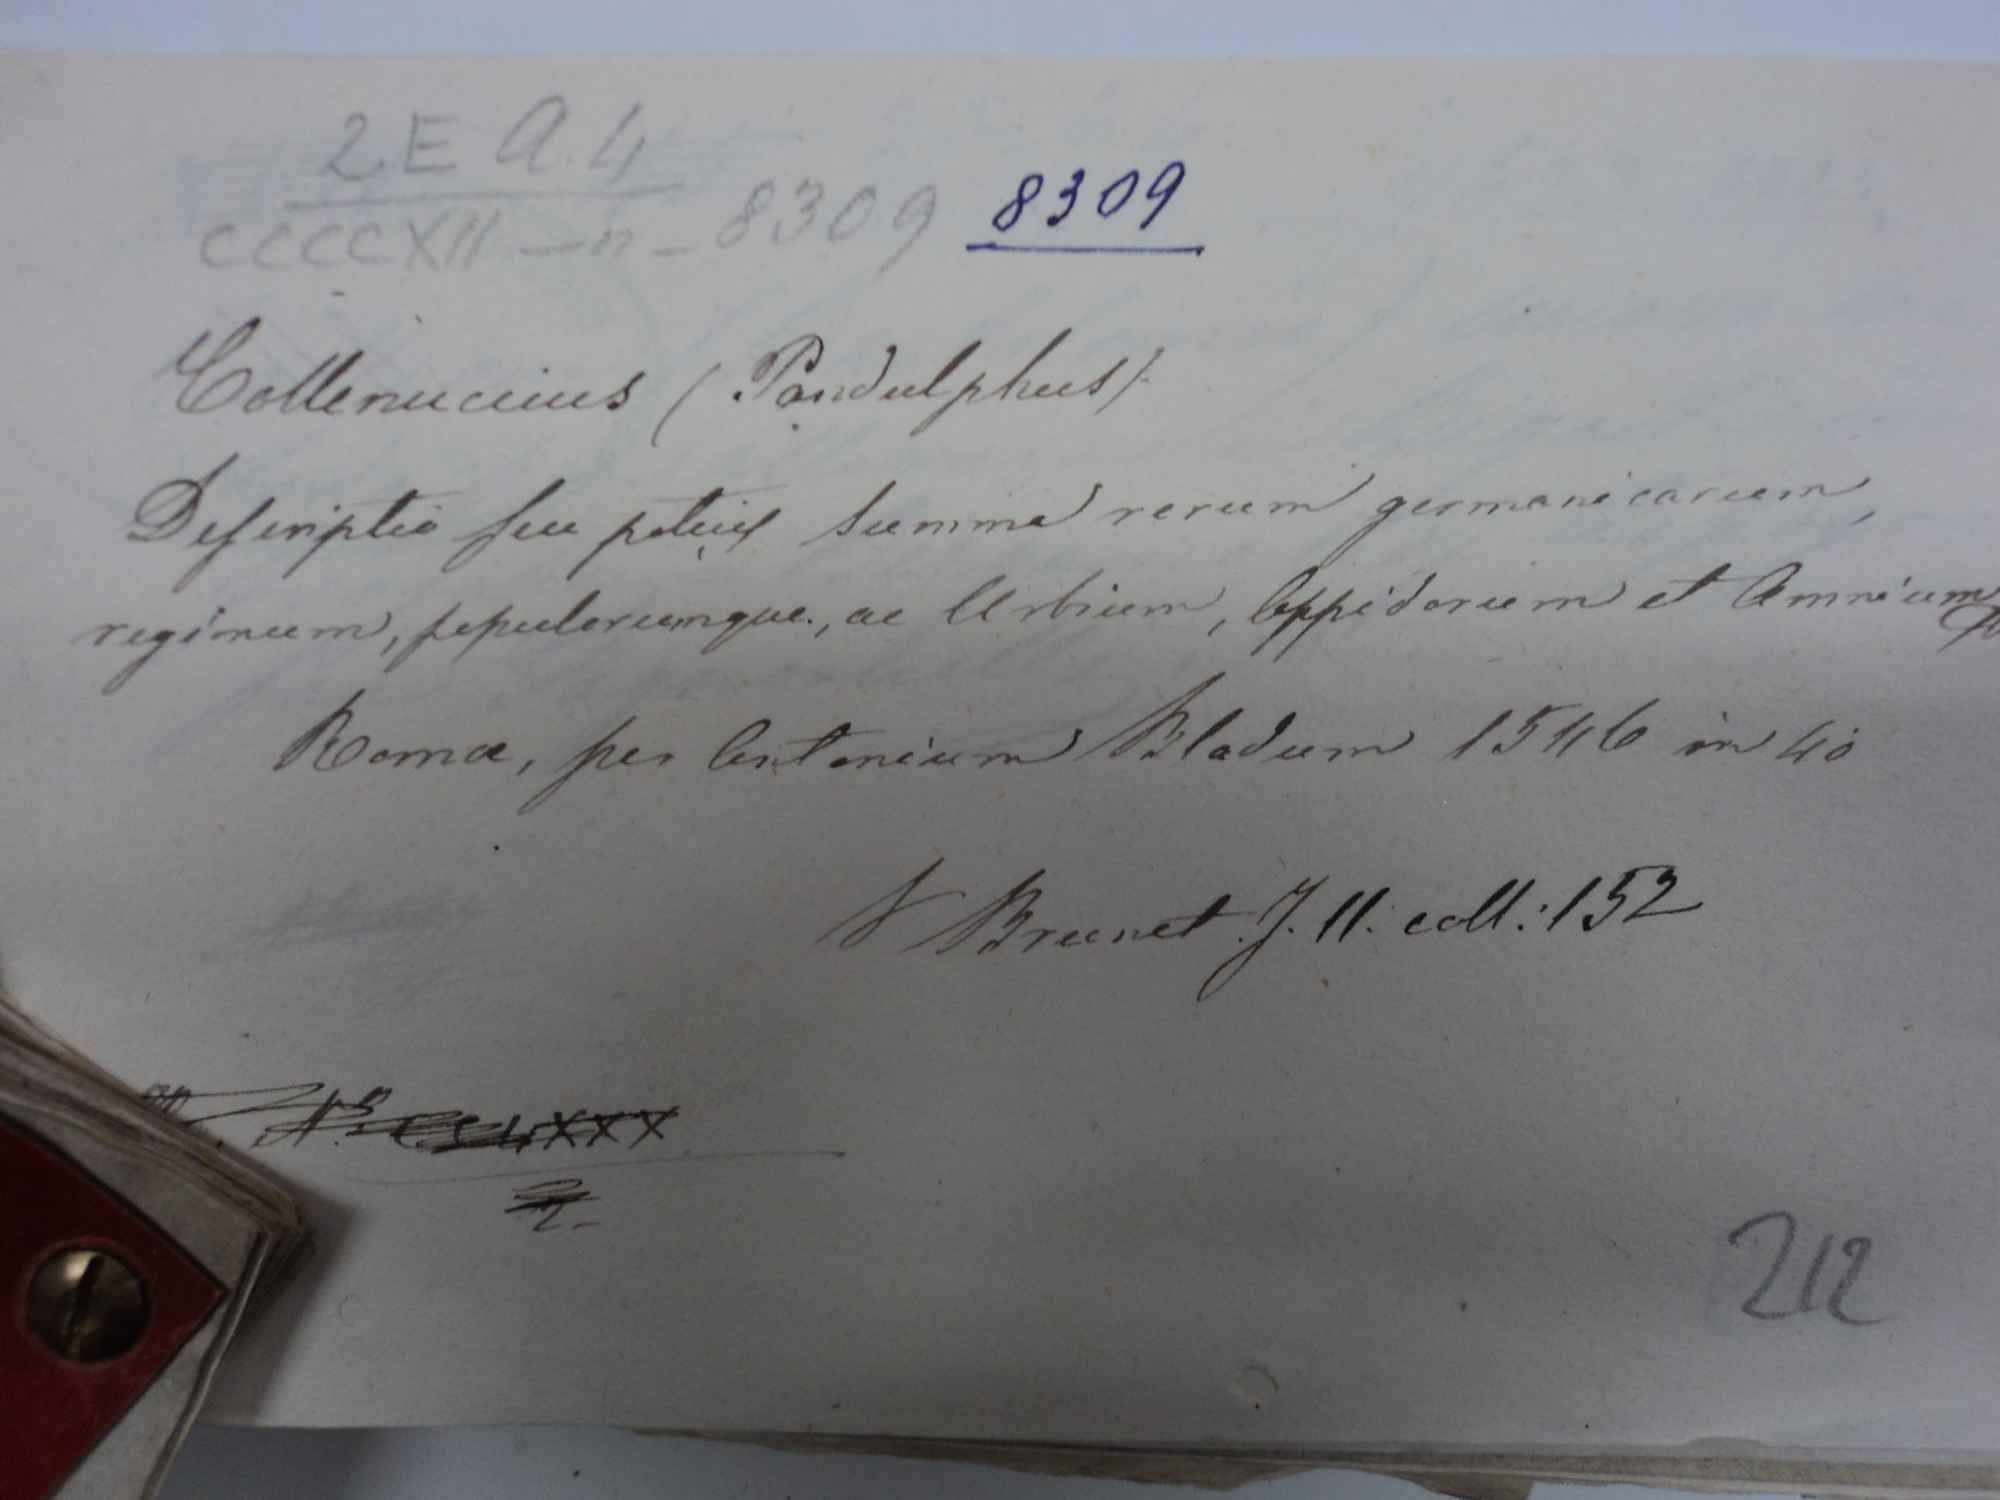 2.E A.4
CCCCXII — n — 8309 8309
Collenucius (Pandulphus).
Descriptio seu potius summa rerum germanicarum,
reginum, populorumque, ac Urbium, Oppidorum et Amnium
Romæ, per Antonium Bladum 1546 in 4º
V Brunet. T. II. coll.: 152
XXX
2.
212